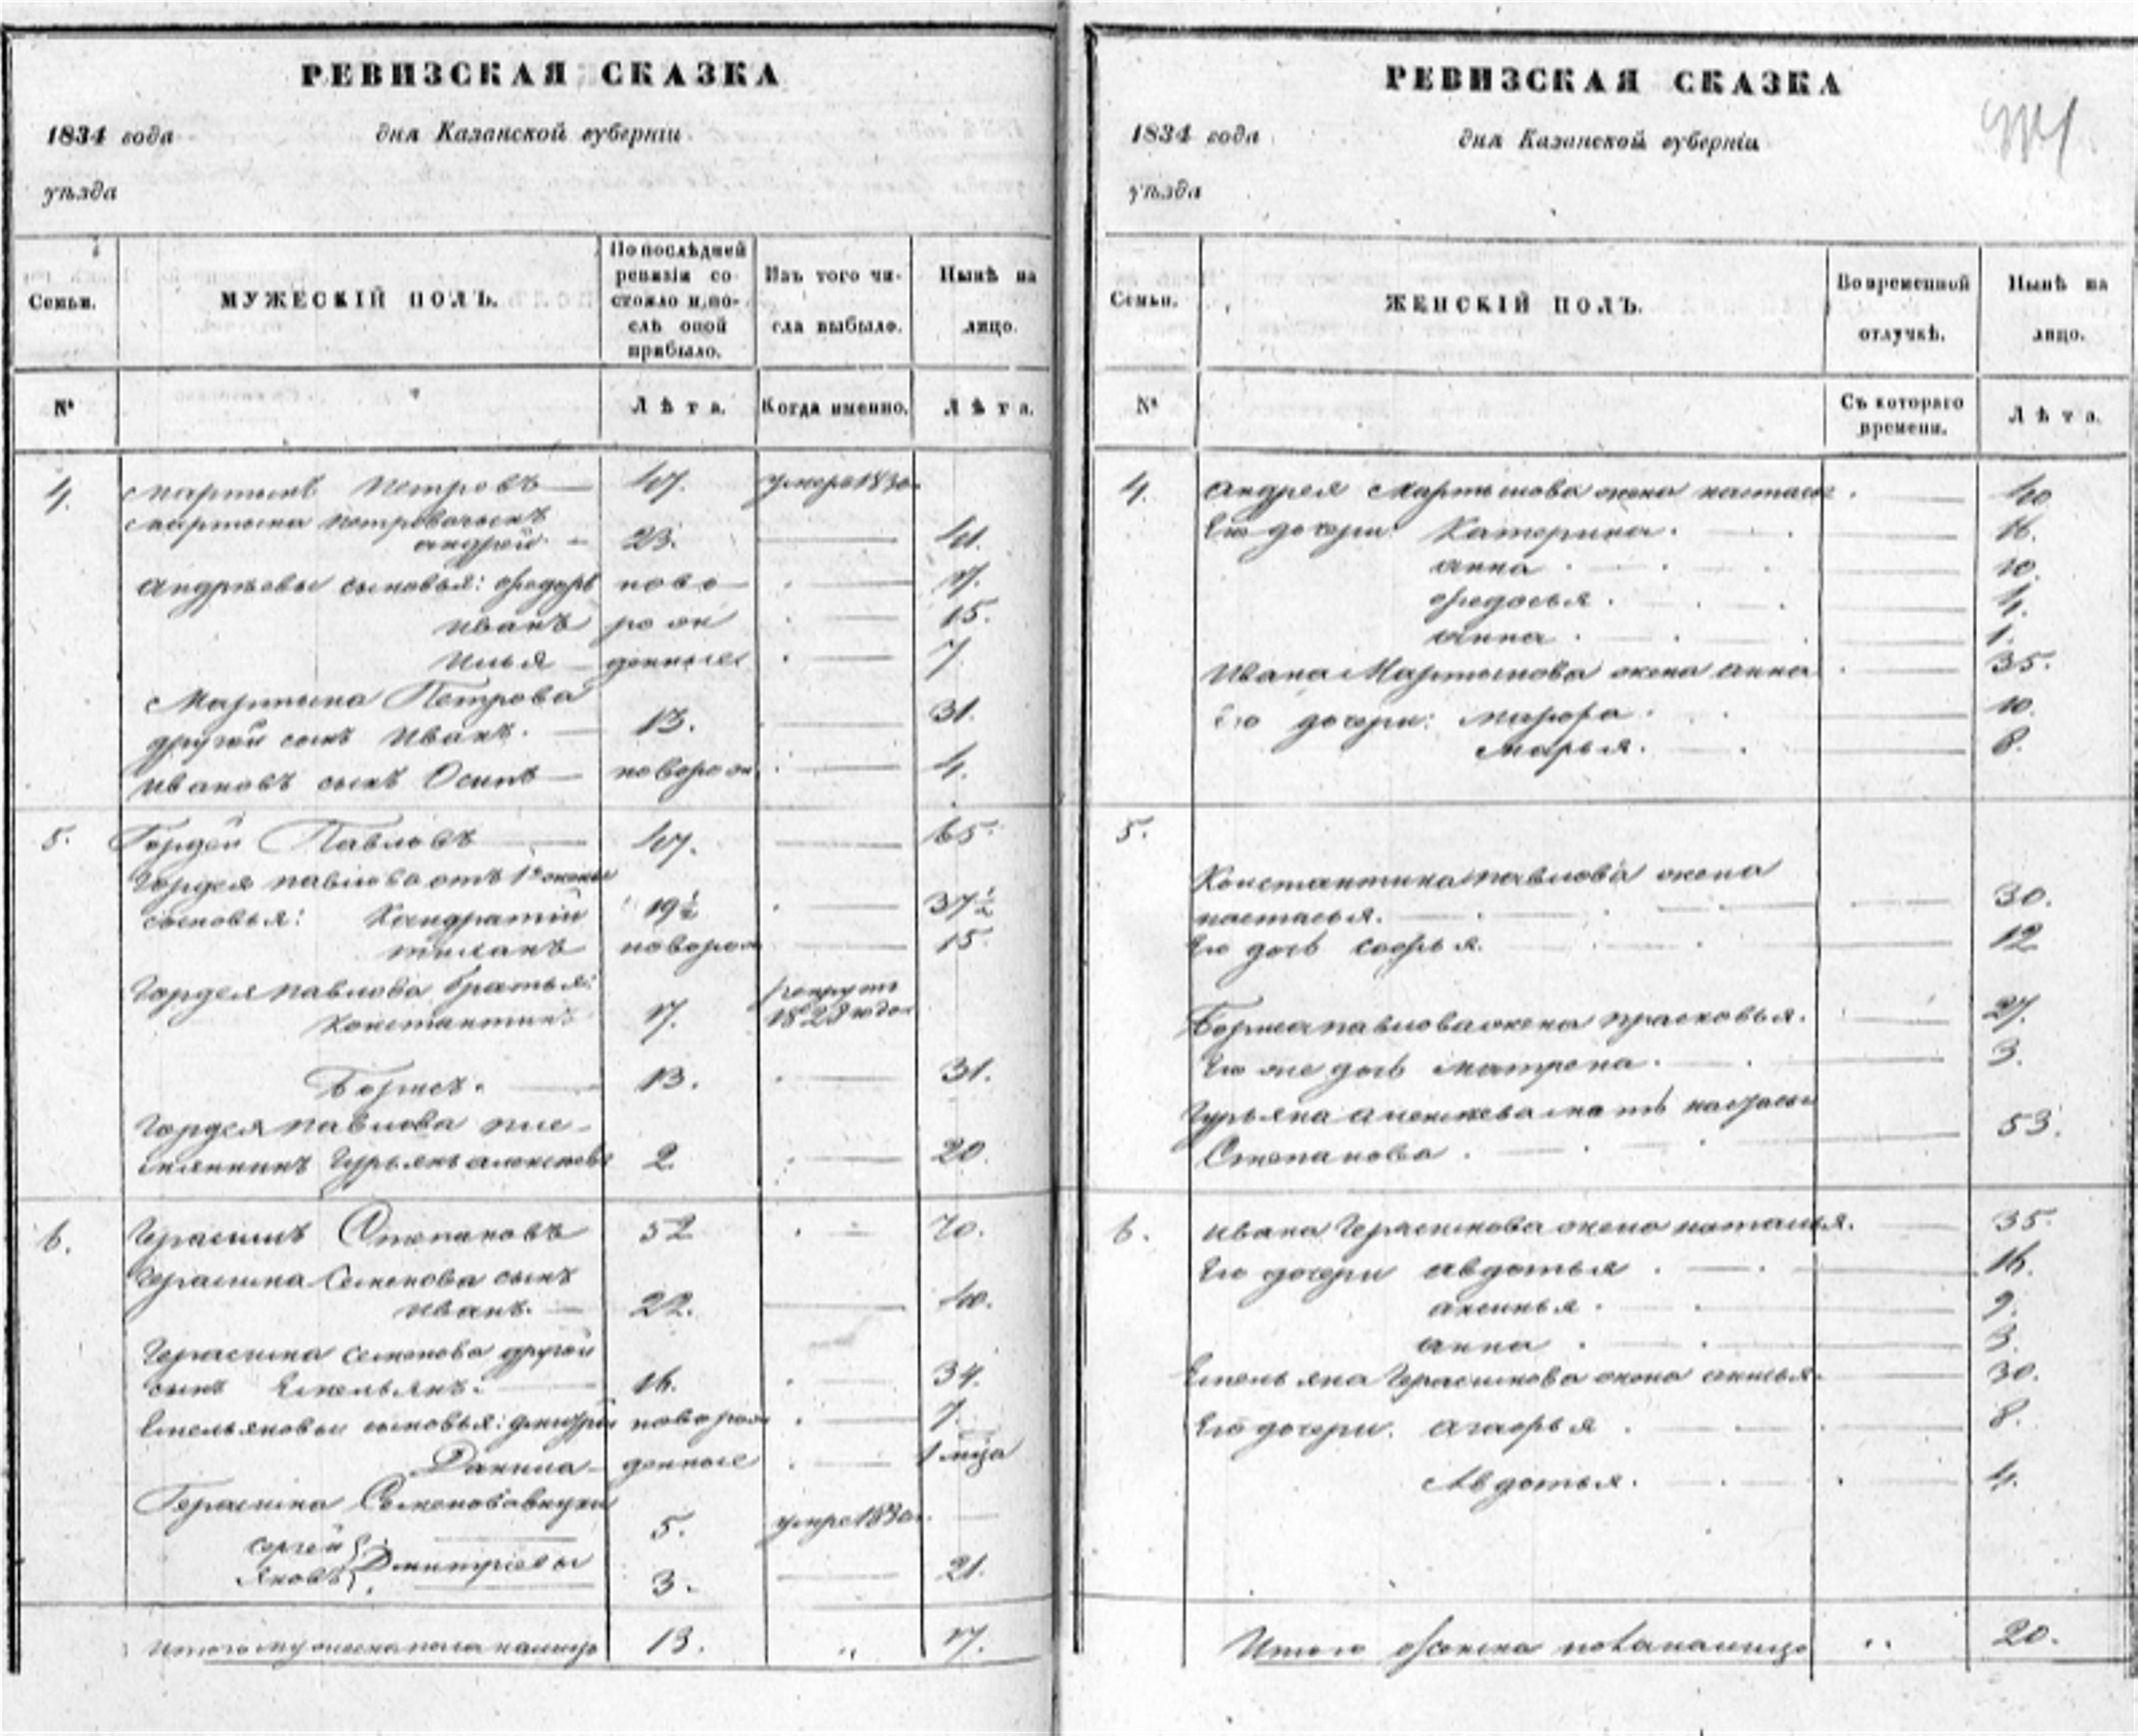 РЕВИЗСКАЯ СКАЗКА
1834 года дня Казанской губерніи
уѣзда
Семьи. МУЖЕСКІЙ ПОЛЪ. По послѣдней ревизіи состояло и, послѣ оной прибыло. Изъ того числа выбыло. Нынѣ на лицо.
№ Лѣта. Когда именно. Лѣта.
4. Мартынъ Петровъ 47. умеръ 1830
Мартына Петрова сынъ
андрей 23. 41.
Андрѣевы сыновья: Ѳедоръ ново 17.
Иванъ рож 15.
Илья денные 7
Мартына Петрова
другой сынъ Иванъ. 13. 31.
Ивановъ сынъ Осипъ новорож 4.
5. Гордей Павловъ 47. 65.
Гордея Павлова отъ 1й жены
сыновья: Кандратій 19½ 37½
новорож 15.
Гордея Павлова братья: рекрут
Константинъ 17. 1828 года
Борисъ. 13. 31.
Гордея Павлова пле-
мянникъ Гурьянъ алексѣевъ 2. 20.
6. Герасимъ Степановъ 52 70.
Герасима Семенова сынъ
Иванъ. 22. 40.
Герасима Семенова другой
сынъ Емельянъ. 16. 34.
Емельяновы сыновья: Дмитрій новорож 7.
Данила денные 1 мца
Герасима Семенова внуки
Сергей 5. умре 1830
Яковъ Дмитріевы 3. 21.
Итого мужеска пола налицо 13. " 17.
РЕВИЗСКАЯ СКАЗКА
1834 года дня Казанской губерніи
уѣзда
Семьи. ЖЕНСКІЙ ПОЛЪ. Во временной отлучкѣ. Нынѣ на лицо.
№ Съ котораго времени. Лѣта.
4. Андрея Мартынова жена настасья. 40
Его дочери: Катерина. 16.
анна 10.
Ѳедосья. 4.
анна. 1.
Ивана Мартынова жена анна 35.
Его дочери: Марфа. 10.
Марья. 8.
5.
Константина Павлова жена
настасья. 30.
Его дочь Софья. 12
Бориса Павлова жена прасковья. 27.
Его же дочь Матрена. 3.
Гурьяна алексѣева мать настасья
Степанова. 53.
6. Ивана Герасимова жена наталья. 35.
Его дочери авдотья. 16.
аксинья. 9.
анна 3.
Емельяна Герасимова жена аксинья. 30.
Его дочери. агафья. 8.
Авдотья. 4.
Итого женска пола налицо " 20.